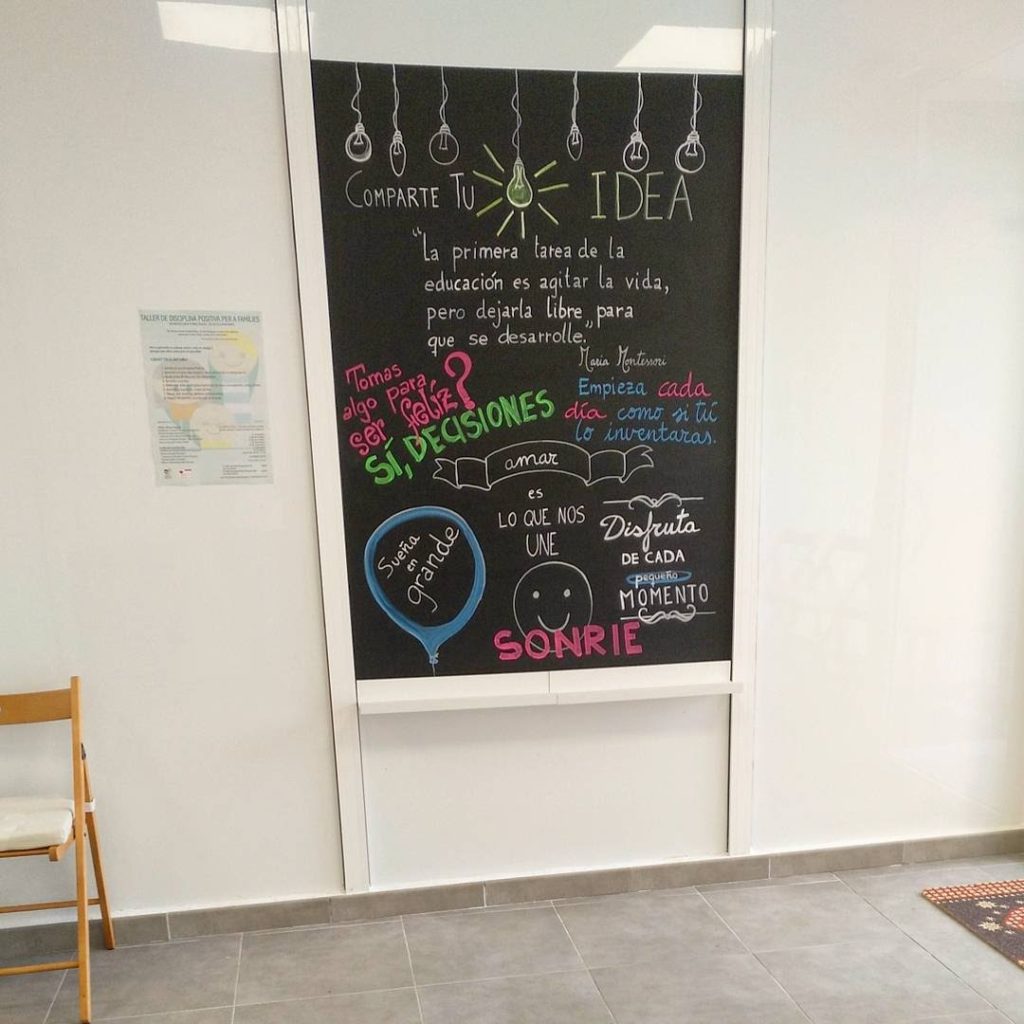 COMPARTE TU IDEA
"La primera tarea de la
educación es agitar la vida,
pero dejarla libre para
que se desarrolle."
María Montessori
Tomas
algo para
ser feliz?
SÍ, DECISIONES
Empieza cada
día como si tú
lo inventaras.
amar
es
LO QUE NOS
UNE
Sueña
en
grande
Disfruta
DE CADA
pequeño
MOMENTO
SONRIE
TALLER DE DISCIPLINA POSITIVA PER A FAMÍLIES